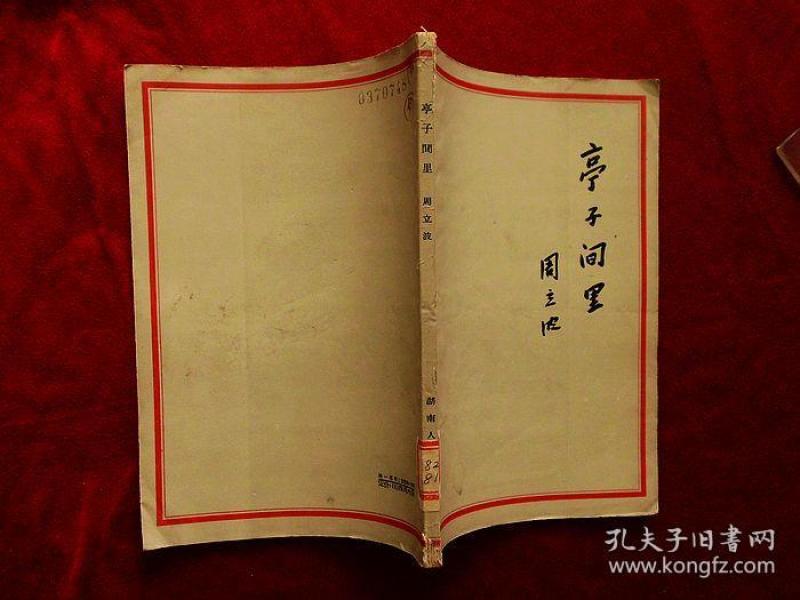 亭子间里
周立波
亭子間里 周立波 湖南人
0370748
82
81
孔夫子旧書网
www.kongfz.com